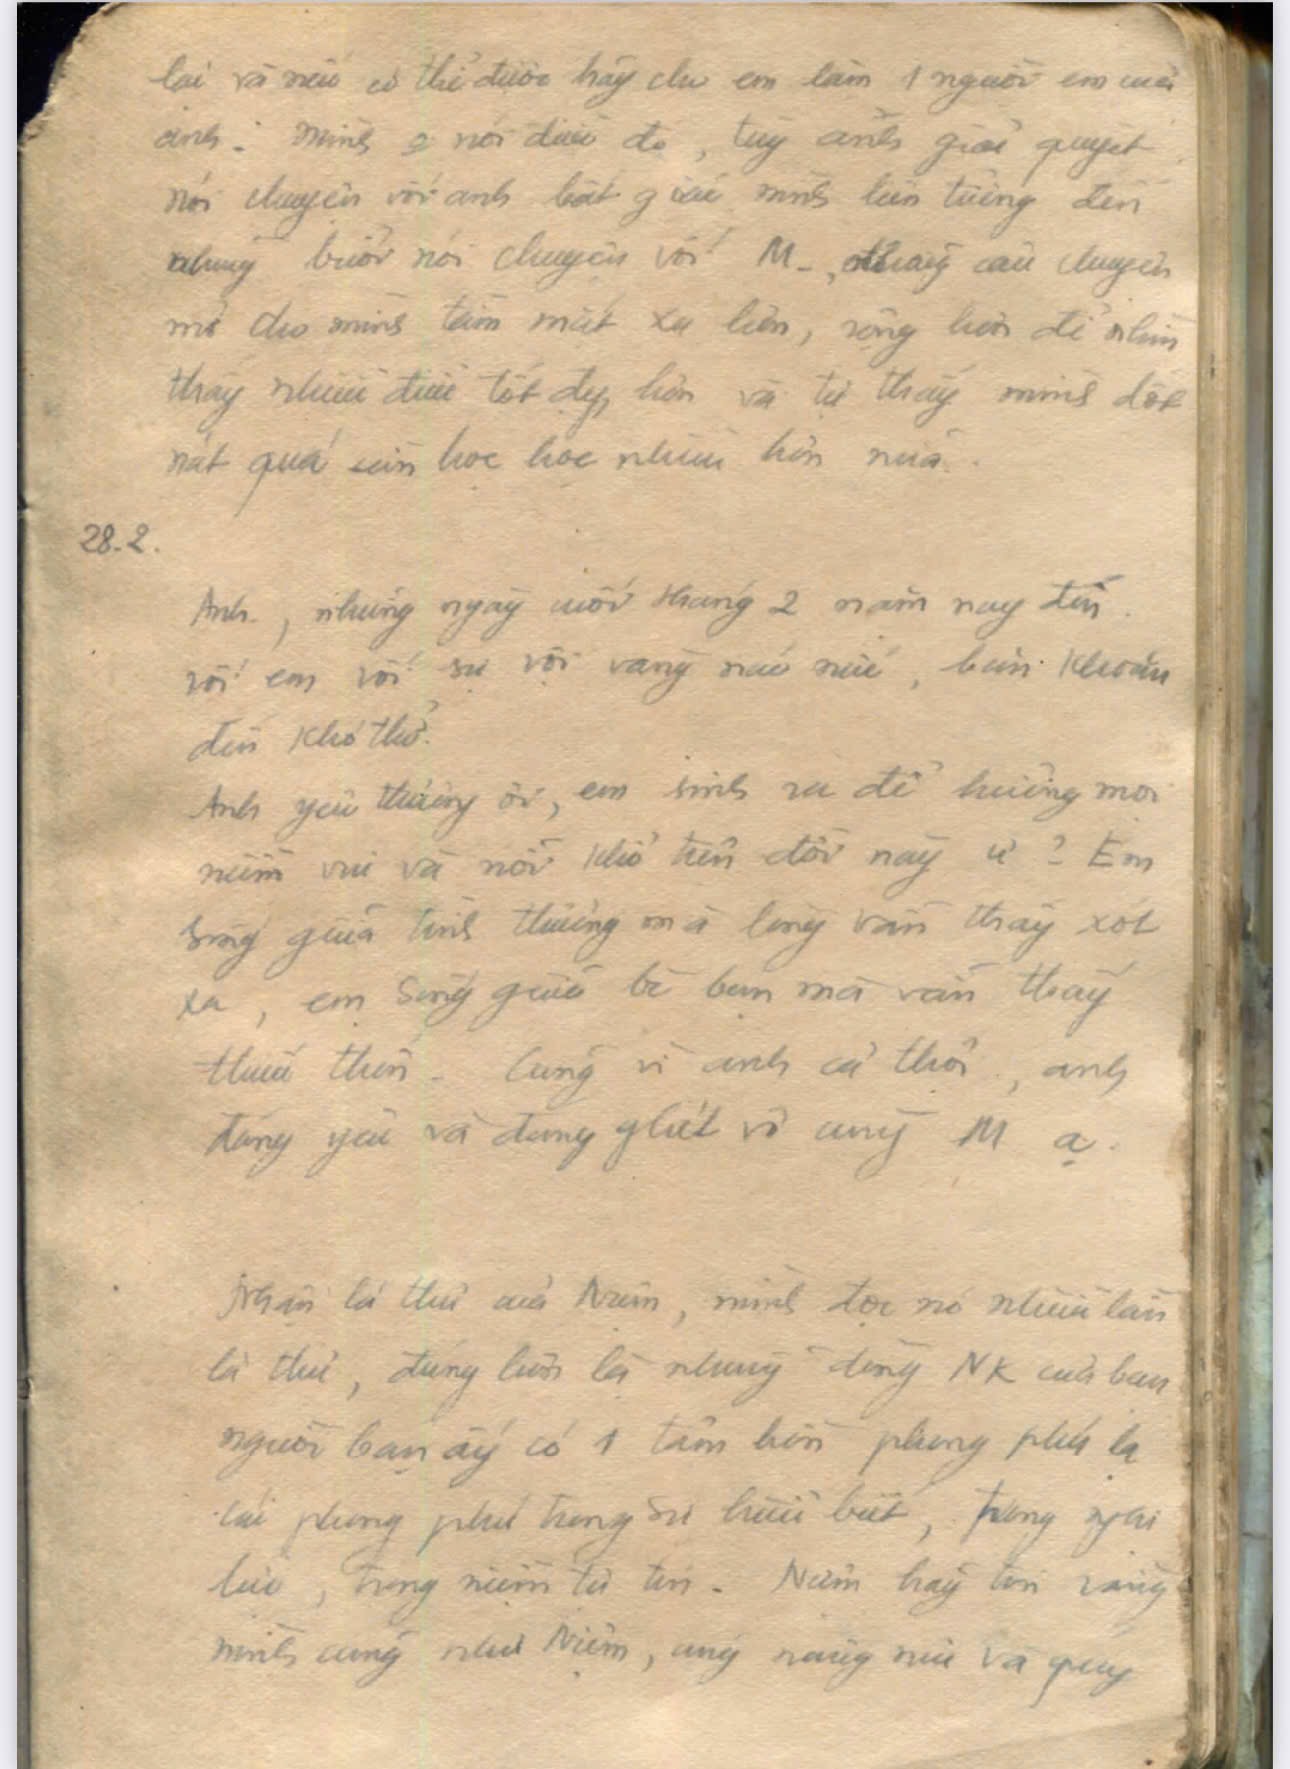 lại và nếu có thể được hãy cho em làm 1 người em của
anh. Mình nói điều đó, tùy anh giải quyết.
nói chuyện với anh bất giác mình liên tưởng đến
những buổi nói chuyện với M_, những câu chuyện
mở cho mình tầm mắt xa hơn, rộng hơn để nhìn
thấy nhiều điều tốt đẹp hơn và tự thấy mình dốt
nát quá cần học học nhiều hơn nữa.
28.2.
Anh, những ngày cuối tháng 2 năm nay đến
với em với sự vội vàng náo nức, băn khoăn
đến khó thở.
Anh yêu thương ơi, em sinh ra để hưởng mọi
niềm vui và nỗi khổ trên đời này ư? Em
sống giữa tình thương mà lòng vẫn thấy xót
xa, em sống giữa bè bạn mà vẫn thấy
thiếu thốn. Cũng vì anh cả thôi, anh
đáng yêu và đáng ghét vô cùng M ạ.
Nhận lá thư của Niệm, mình đọc nó nhiều lần
lá thư, đúng hơn là những dòng NK của bạn
người bạn ấy có 1 tâm hồn phong phú lạ
cái phong phú trong sự hiểu biết, trong nghị
lực, trong niềm tự tin. Niệm hãy tin rằng
mình cũng như Niệm, cũng nâng niu và quý